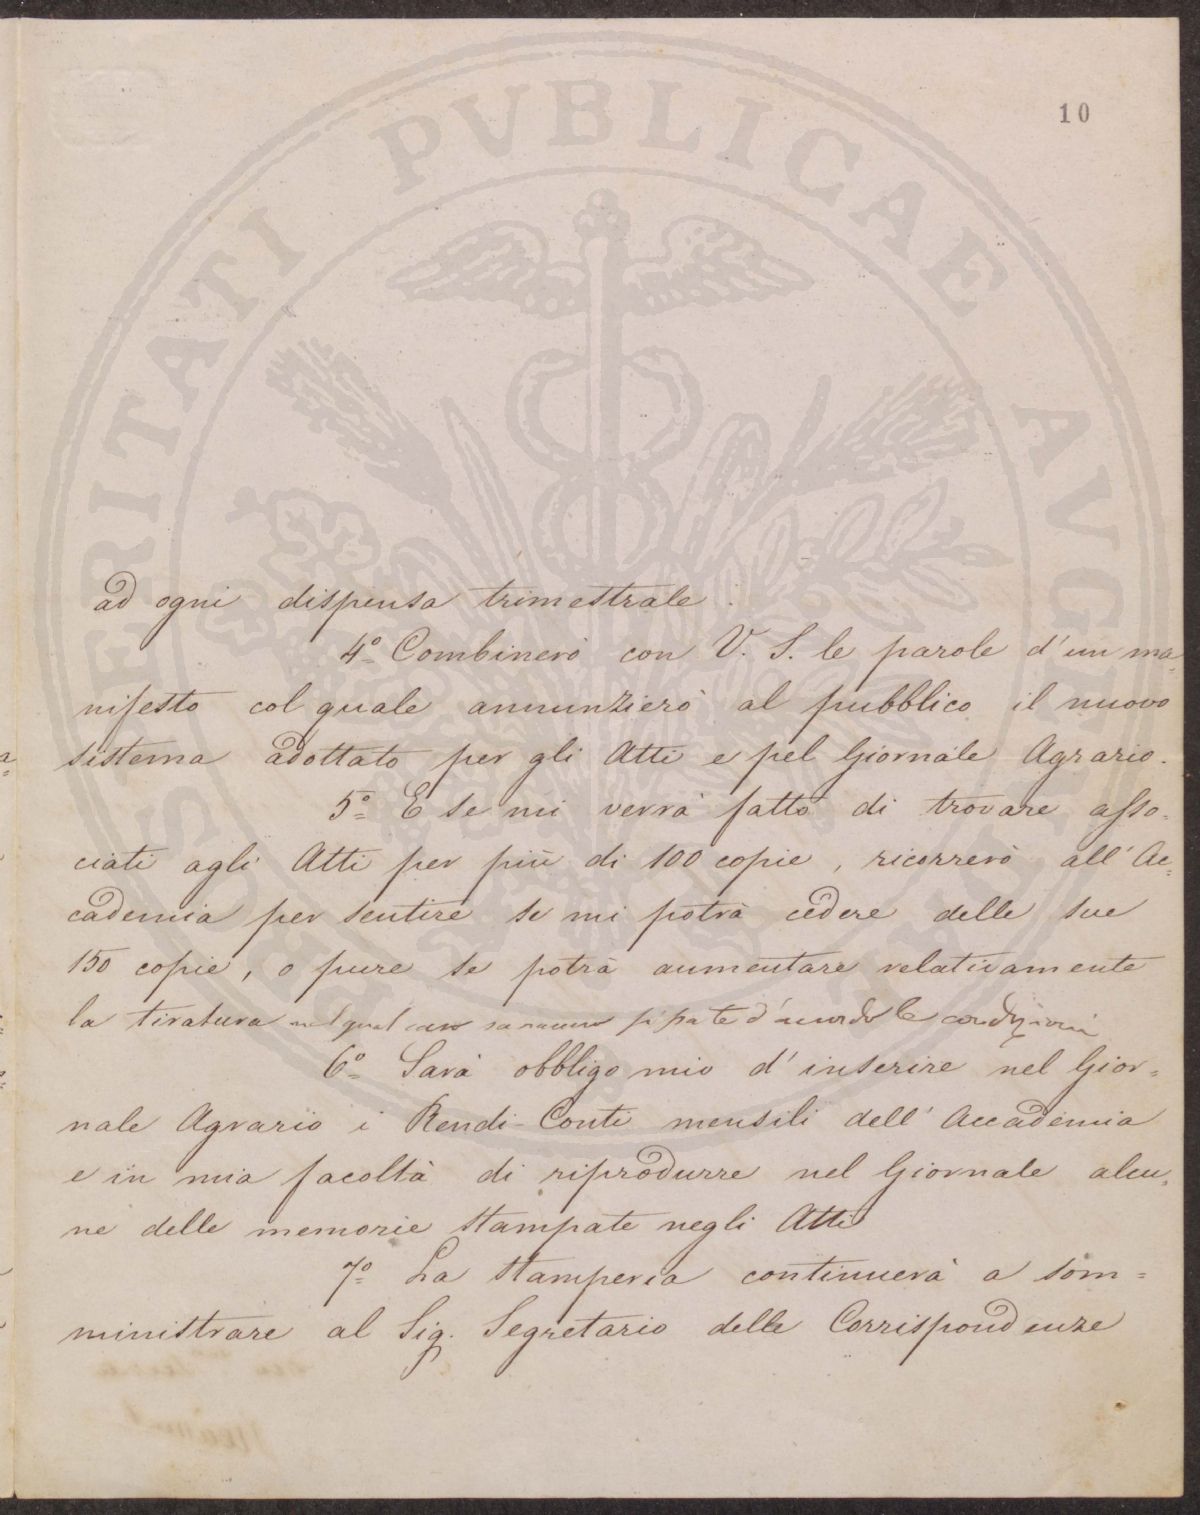 10
PROSPERITATI PVBLICAE AVGENDAE
ad ogni dispensa trimestrale.
4.º Combinerò con V. S. le parole d'un ma=
nifesto col quale annunzierò al pubblico il nuovo
sistema adottato per gli Atti e pel Giornale Agrario.
5.º E se mi verrà fatto di trovare asso=
ciati agli Atti per più di 100 copie, ricorrerò all'Ac=
cademia per sentire se mi potrà cedere delle sue
150 copie, o pure se potrà aumentare relativamente
la tiratura nel qual caso saranno fissate d'accordo le condizioni
6.º Sarà obbligo mio d'inserire nel Gior=
nale Agrario i Rendi-Conti mensili dell'Accademia
e in mia facoltà di riprodurre nel Giornale alcu=
ne delle memorie stampate negli Atti
7.º La stamperia continuerà a som=
ministrare al Sig. Segretario delle Corrispondenze